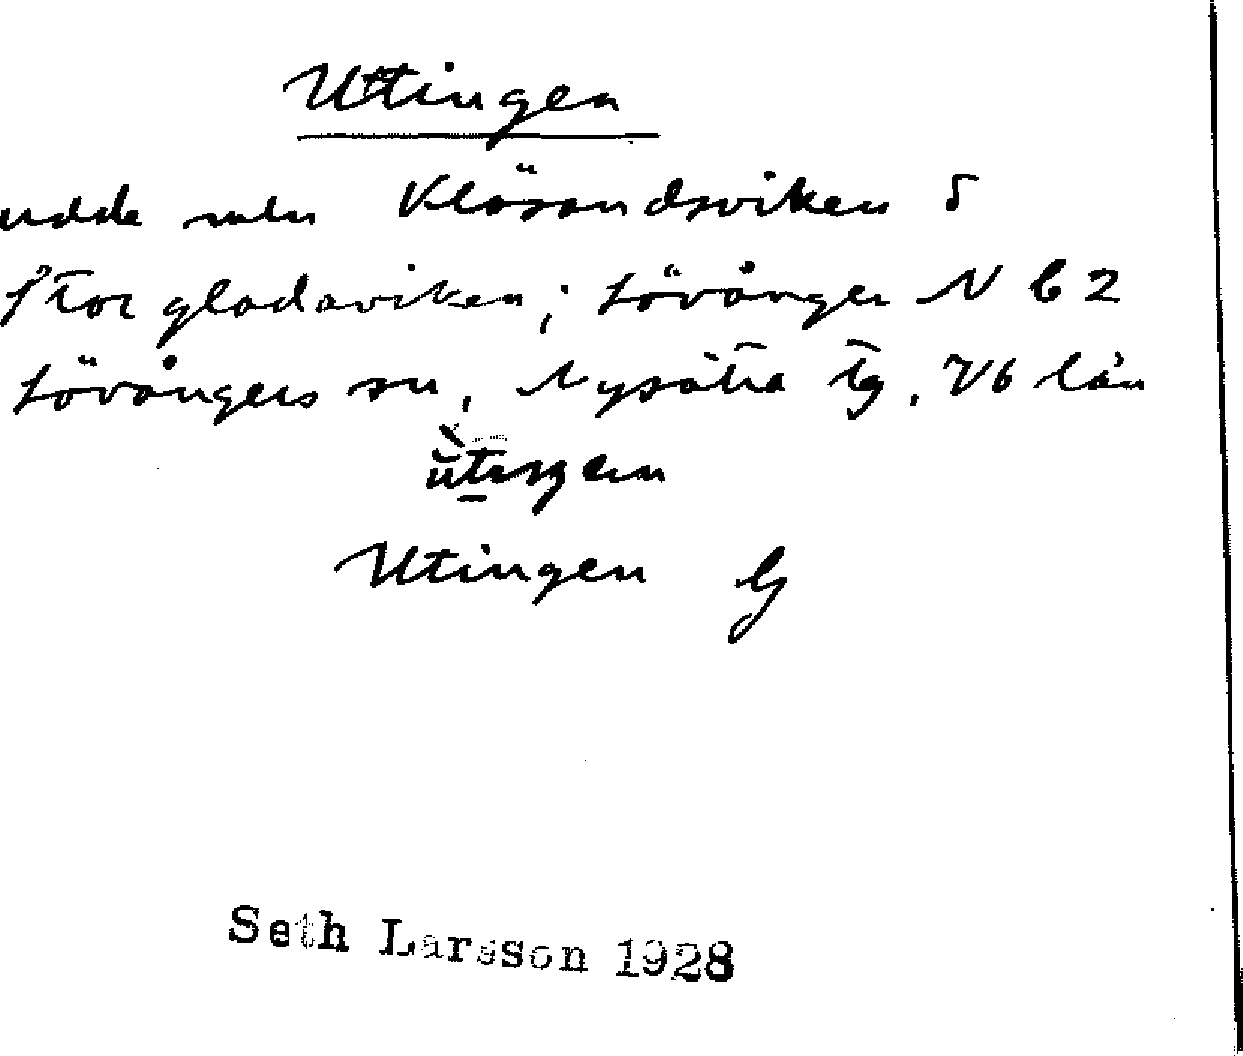 Uttingen
udde mln Klösandsviken o
Storgladaviken; Lövånger N b 2
Lövångers sn, Nysätra tg. Vb län
Utingen G
Seth Larsson 1928